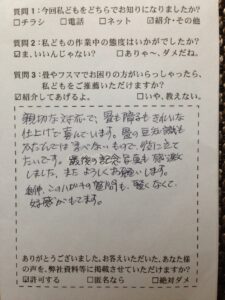 質問1：今回私どもをどちらでお知りになりましたか?
□チラシ □電話 □ネット ☑紹介・その他
質問2：私どもの作業中の態度はいかがでしたか?
☑ま、いいんじゃない? □ありゃ〜、ダメだね。
質問3：畳やフスマでお困りの方がいらっしゃったら、
私どもをご推薦いただけますか?
☑紹介してあげるよ。 □いや、教えない。
親切な対応で、畳も障子もきれいな
仕上げで喜んでいます。畳の豆知識も
ので、役に立て
たいです。最後の記念写真も
した。またよろしくお願いします。
この ハガキの質問も、堅くなくて、
好感がもてます。
ありがとうございました。お答えいただいた、あなた様
の声を、弊社資料等に掲載させていただけますか?
☑許可する □匿名なら □絶対ダメ